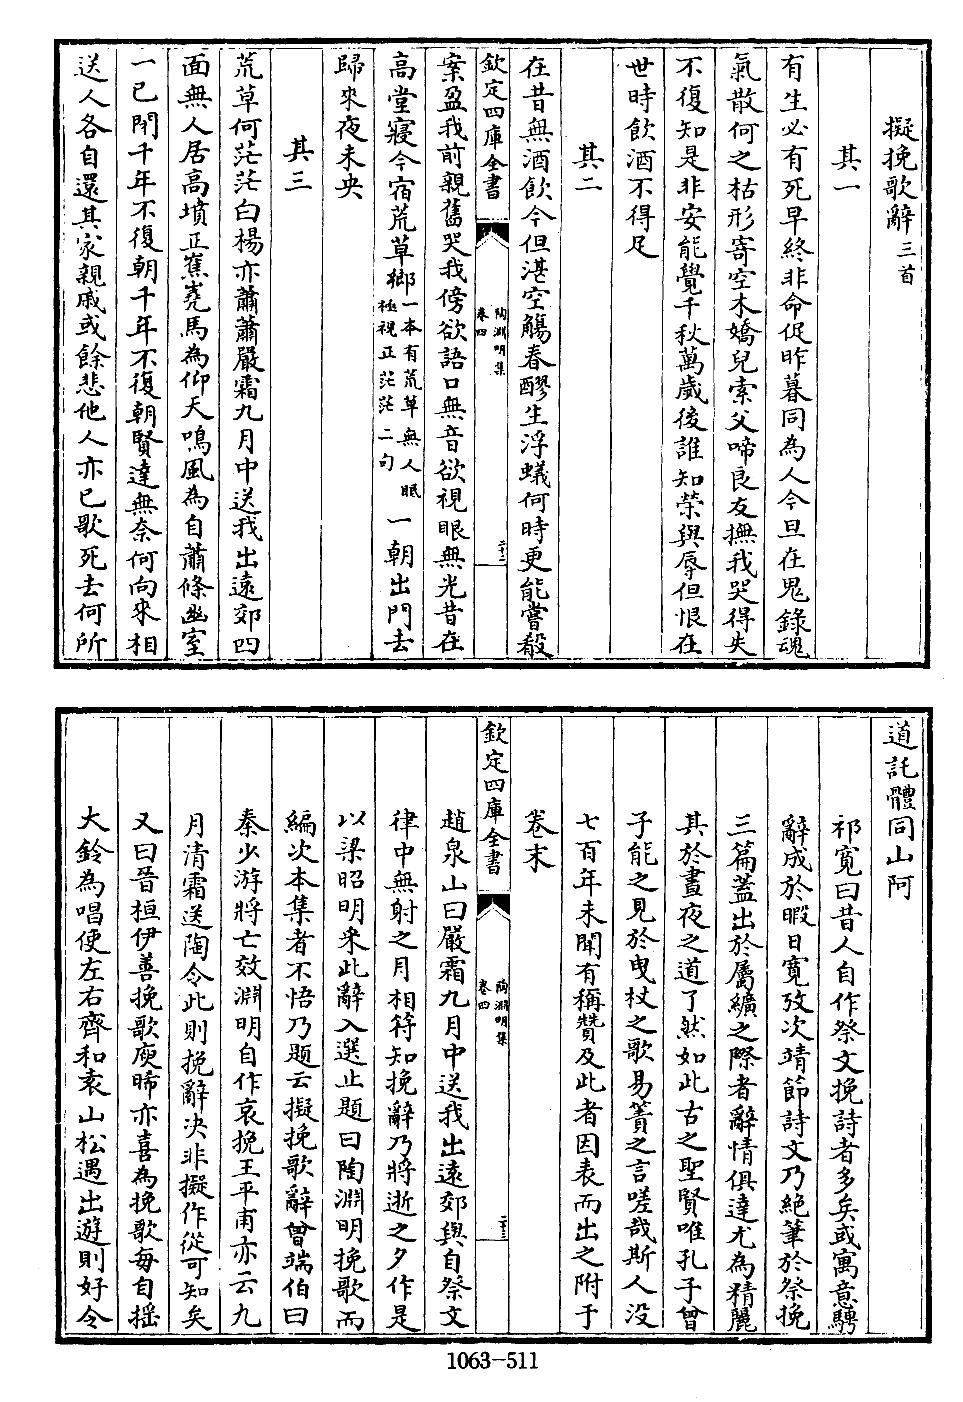 擬挽歌辭三首
其一
有生必有死早終非命促昨暮同為人今旦在鬼錄魂
氣散何之枯形寄空木嬌兒索父啼良友撫我哭得失
不復知是非安能覺千秋萬歲後誰知榮與辱但恨在
世時飲酒不得足
其二
在昔無酒飲今但湛空觴春醪生浮蟻何時更能嘗殽
欽定四庫全書
陶淵明集
卷四
二十二
案盈我前親舊哭我傍欲語口無音欲視眼無光昔在
高堂寢今宿荒草鄉一本有荒草無人眠極視正茫茫二句一朝出門去
歸來夜未央
其三
荒草何茫茫白楊亦蕭蕭嚴霜九月中送我出遠郊四
面無人居高墳正嶣嶢馬為仰天鳴風為自蕭條幽室
一已閉千年不復朝千年不復朝賢達無奈何向來相
送人各自還其家親戚或餘悲他人亦已歌死去何所
道託體同山阿
祁寬曰昔人自作祭文挽詩者多矣或寓意騁
辭成於暇日寬攷次靖節詩文乃絕筆於祭挽
三篇蓋出於屬纊之際者辭情俱達尤為精麗
其於晝夜之道了然如此古之聖賢唯孔子曾
子能之見於曳杖之歌易簀之言嗟哉斯人没
七百年未聞有稱贊及此者因表而出之附于
卷末
欽定四庫全書
陶淵明集
卷四
二十三
趙泉山曰嚴霜九月中送我出遠郊與自祭文
律中無射之月相符知挽辭乃將逝之夕作是
以梁昭明采此辭入選止題曰陶淵明挽歌而
編次本集者不悟乃題云擬挽歌辭曾端伯曰
秦少游將亡效淵明自作哀挽王平甫亦云九
月清霜送陶令此則挽辭决非擬作從可知矣
又曰晉桓伊善挽歌庾晞亦喜為挽歌每自揺
大鈴為唱使左右齊和袁山松遇出遊則好令
1063-511